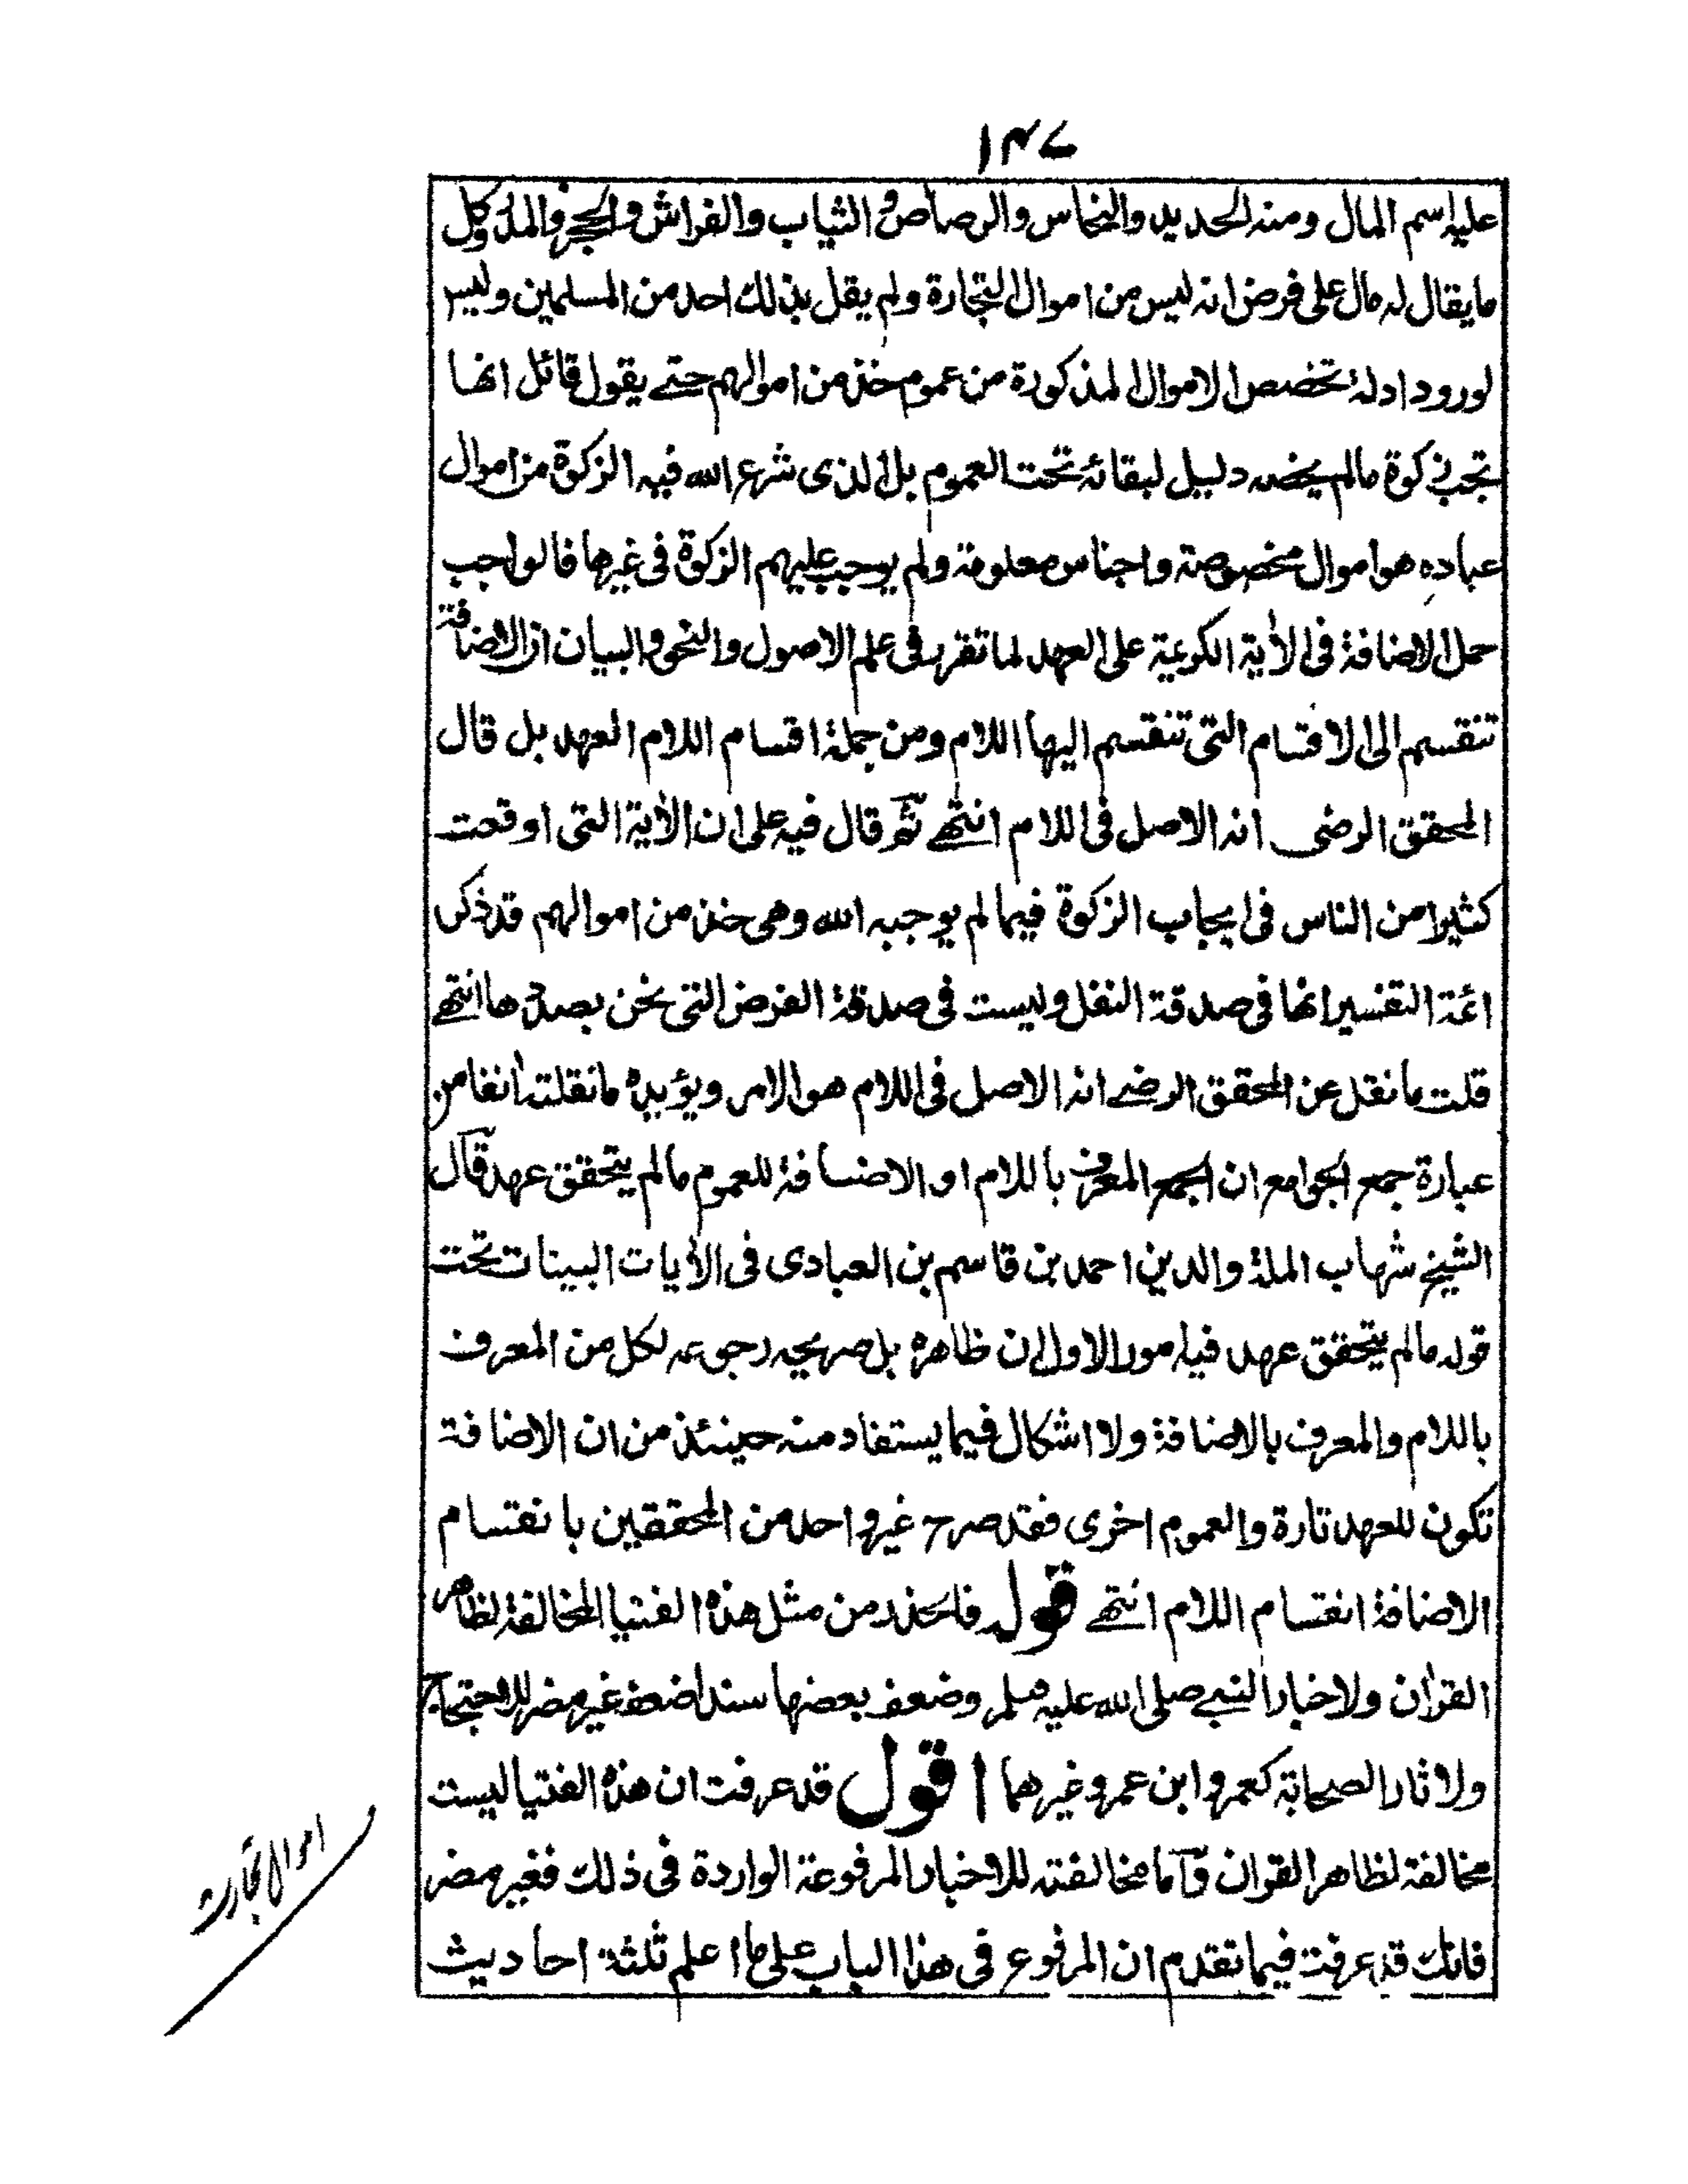 ١٣٧
عليه اسم المال ومنه الحديد والنحاس والرصاص و الثياب والفراش والحجر والمدر وكل
ما يقال له مال على فرض انه ليس من اموال التجارة ولم يقل بذلك احد من المسلمين وليس
لورود ادلة تخصص الاموال المذكورة من عموم خذ من اموالهم حتے يقول قائل انها
تجب زكوة مالم يخصه دليل لبقائه تحت العموم بل الذى شرع الله فيه الزكوة من اموال
عباده هو اموال مخصوصة واجناس معلومة ولم يوجب عليهم الزكوة فى غيرها فالواجب
حمل الاضافة فى الأية الكريمة على العهد لما تقرر فى علم الاصول والنحو والبيان ان الاضافة
تنقسم الى الاقسام التى تنقسم اليها اللام ومن جملة اقسام اللام العهد بل قال
المحقق الرضى انه الاصل فى اللام انتهے ثم قال فيه على ان الأية التى اوقعت
كثيرا من الناس فى ايجاب الزكوة فيما لم يوجبه الله وهى خذ من اموالهم قد ذكر
ائمة التفسير انها فى صدقة النفل وليست فى صدقة الفرض التى نحن بصددها انتهے
قلت ما نقل عن المحقق الرضے انه الاصل فى اللام هو الامر ويؤيده ما نقلته أنفا من
عبارة جمع الجوامع ان الجمع المعرف باللام او الاضافة للعموم مالم يتحقق عهد قال
الشيخ شهاب الملة والدين احمد بن قاسم بن العبادى فى الأيات البينات تحت
قوله مالم يتحقق عهد فيه امور الاول ان ظاهره بل صريحه رجوعه لكل من المعرف
باللام والمعرف بالاضافة ولا اشكال فيما يستفاد منه حينئذ من ان الاضافة
تكون للعهد تارة والعموم اخرى فقد صرح غير واحد من المحققين بانقسام
الاضافة انقسام اللام انتهے قوله فاحذر من مثل هذه الفتيا المخالفة لظاهر
القرأن ولاخبار النبے صلى الله عليه وسلم وضعف بعضها سندا ضعف غير مضر للاحتجاج
ولاثار الصحابة كعمر وابن عمر وغيرهما اقول قد عرفت ان هذه الفتيا ليست
مخالفة لظاهر القران وأما مخالفته للاخبار المرفوعة الواردة فى ذلك فغير مضر
فانك قد عرفت فيما تقدم ان المرفوع فى هذا الباب على ما اعلم ثلثة احاديث
اموال تجارت